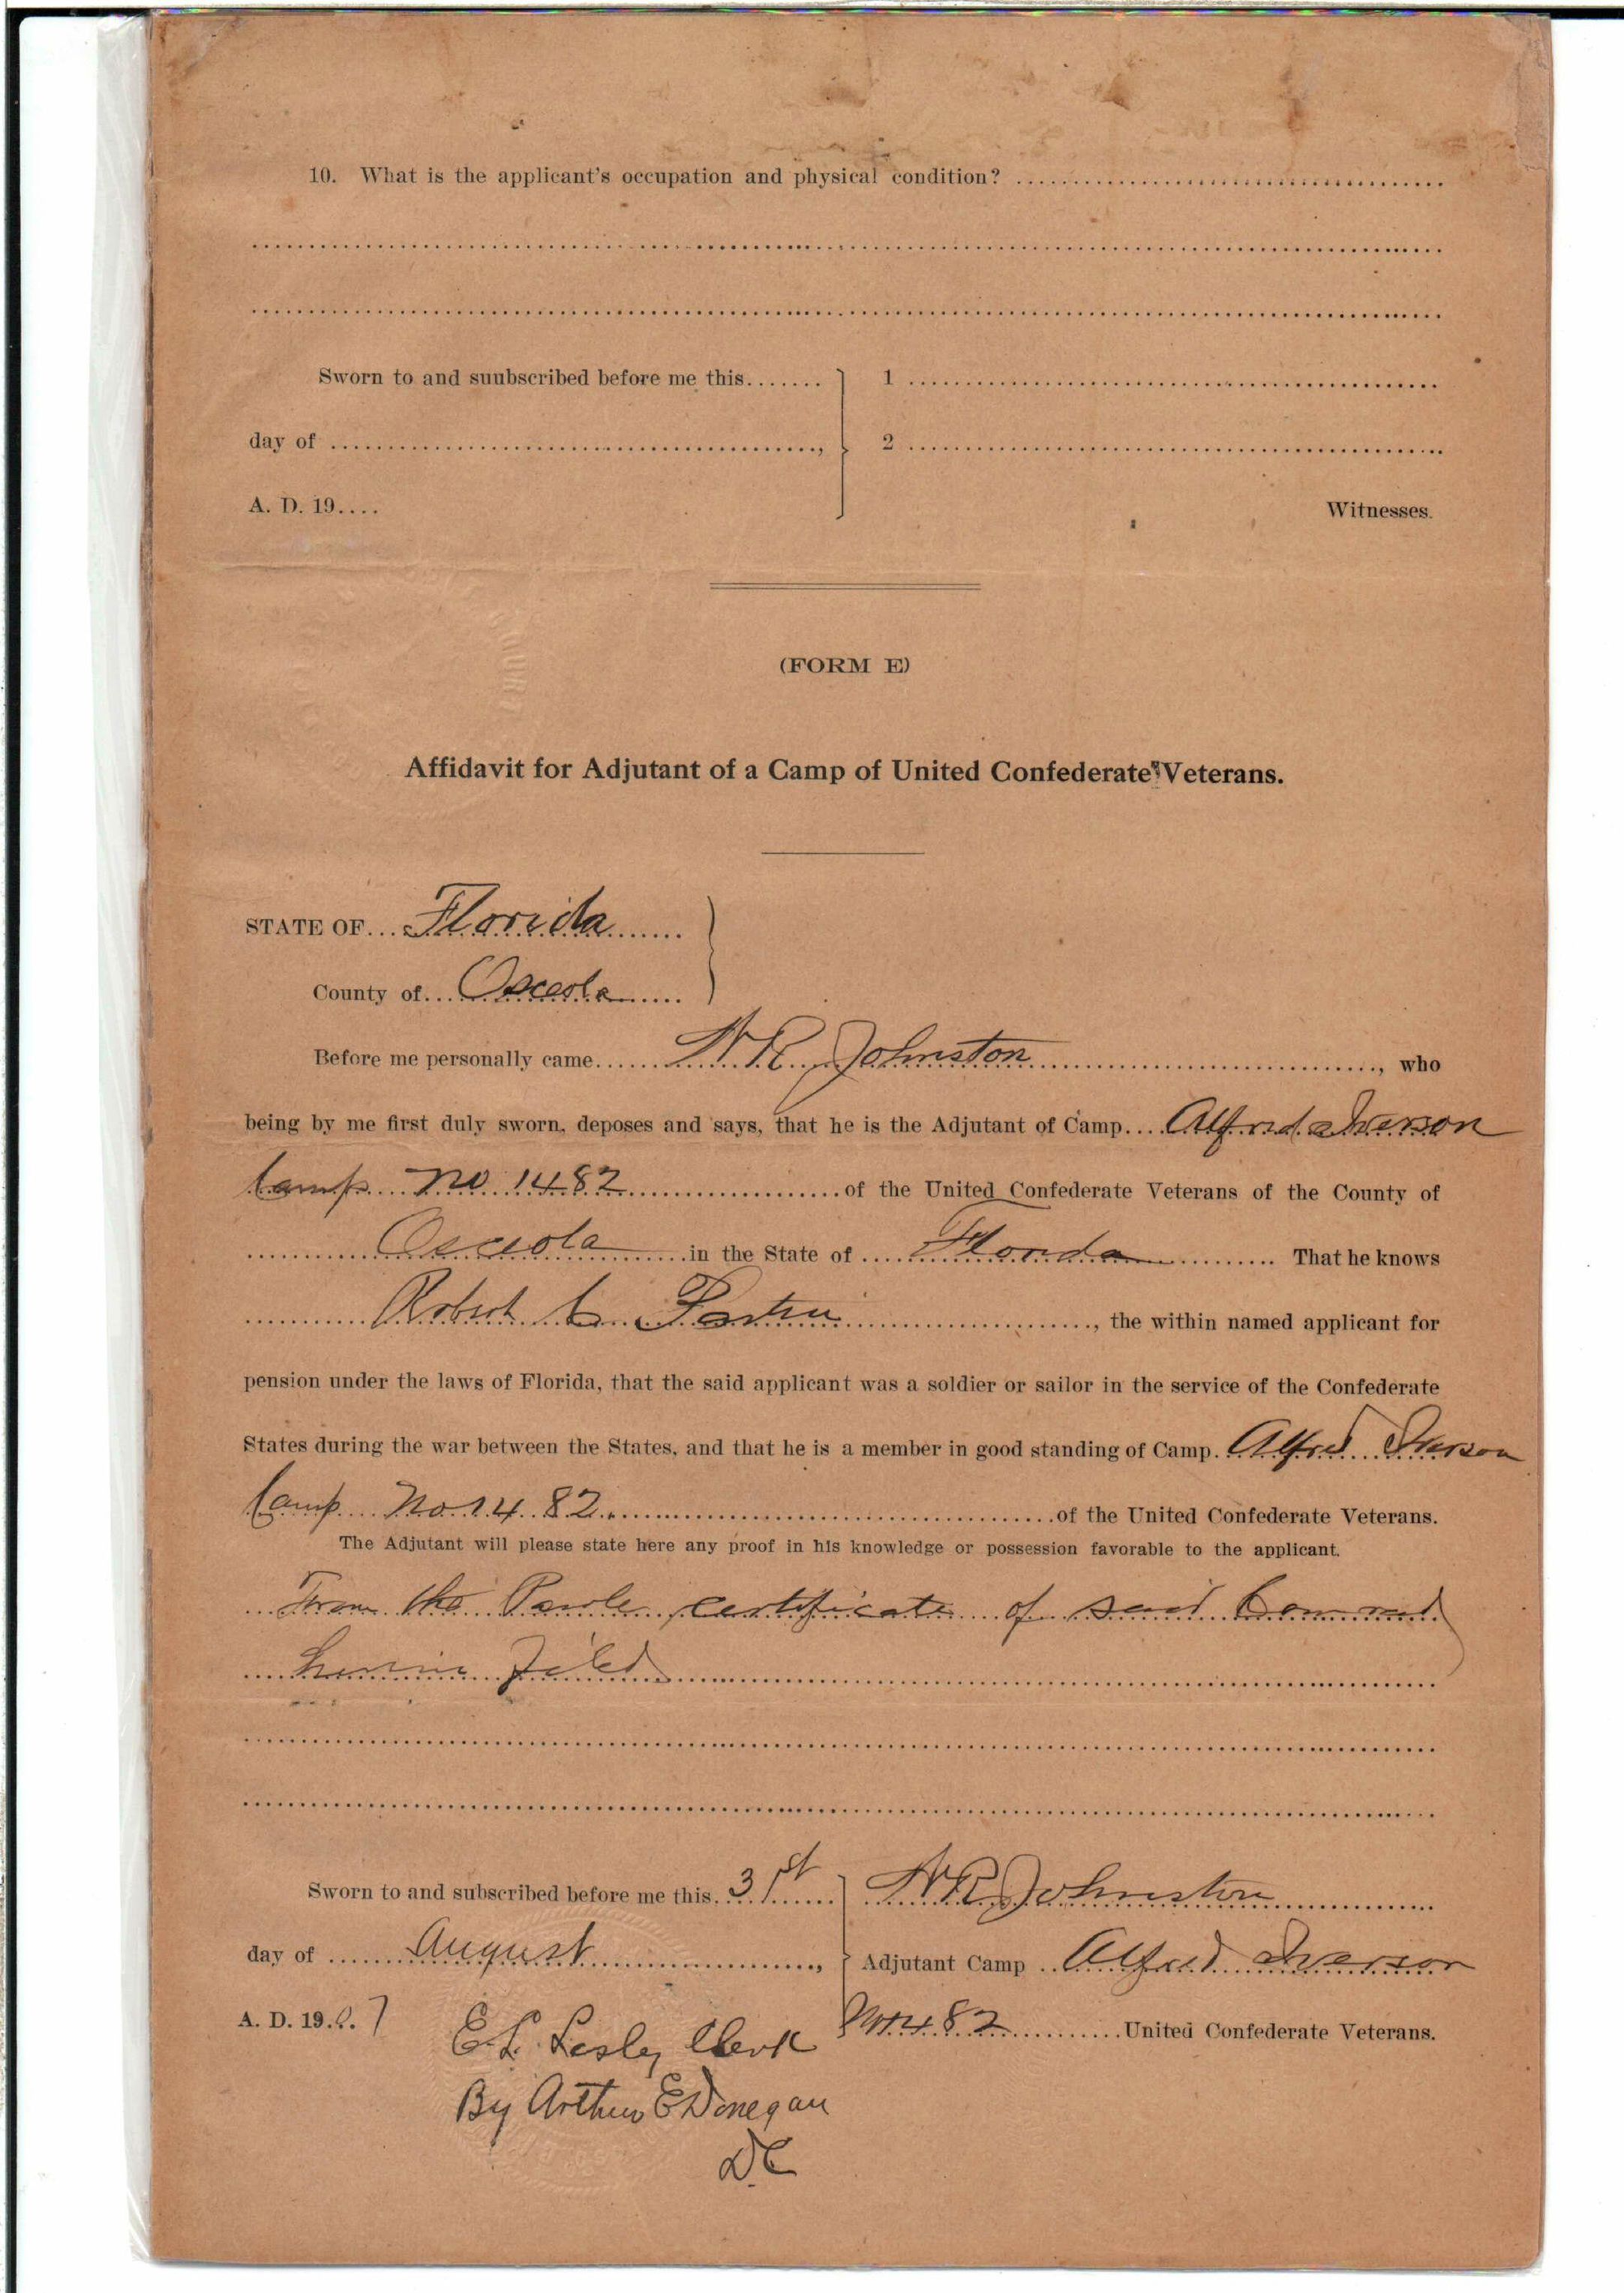 10. What is the applicant's occupation and physical condition? ........................................
........................................
........................................
Sworn to and suubscribed before me this....... 1 ........................................
day of ........................................, 2 ........................................
A. D. 19.... Witnesses.
(FORM E)
Affidavit for Adjutant of a Camp of United Confederate Veterans.
STATE OF... Florida.......
County of... Osceola......
Before me personally came...... R. Johnston ........................................, who
being by me first duly sworn, deposes and says, that he is the Adjutant of Camp.... Alfred Iverson
Camp No 1482 ....................of the United Confederate Veterans of the County of
............ Osceola .......in the State of .... Florida .......... That he knows
............ Robert C. ...................., the within named applicant for
pension under the laws of Florida, that the said applicant was a soldier or sailor in the service of the Confederate
States during the war between the States, and that he is a member in good standing of Camp. Alfred Iverson
Camp No 1482 ........................................of the United Confederate Veterans.
The Adjutant will please state here any proof in his knowledge or possession favorable to the applicant.
From the Parole certificate of said Comrad
filed ........................................
........................................
........................................
Sworn to and subscribed before me this. 31st...... R Johnston ....................
day of ....... August ...................., Adjutant Camp .. Alfred Iverson
A. D. 19.0.7 E. L. Lesley Clerk No 1482 ............United Confederate Veterans.
By Arthur E Donegan
DC